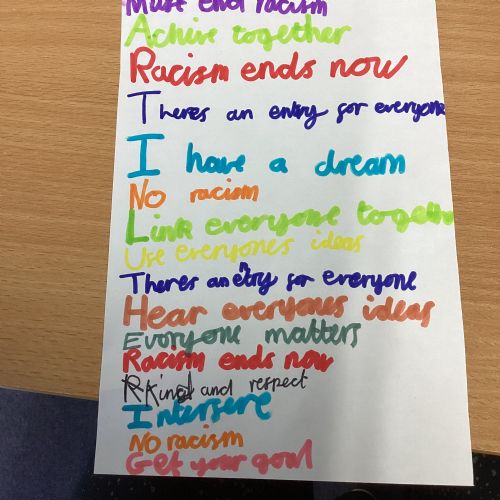 Must end racism
Achive together
Racism ends now
Theres an entry for everyone
I have a dream
No racism
Link everyone together
Use everyones ideas
Theres an entry for everyone
Hear everyones ideas
Everyone matters
Racism ends now
Kind and respect
Intersere
No racism
Get your goal